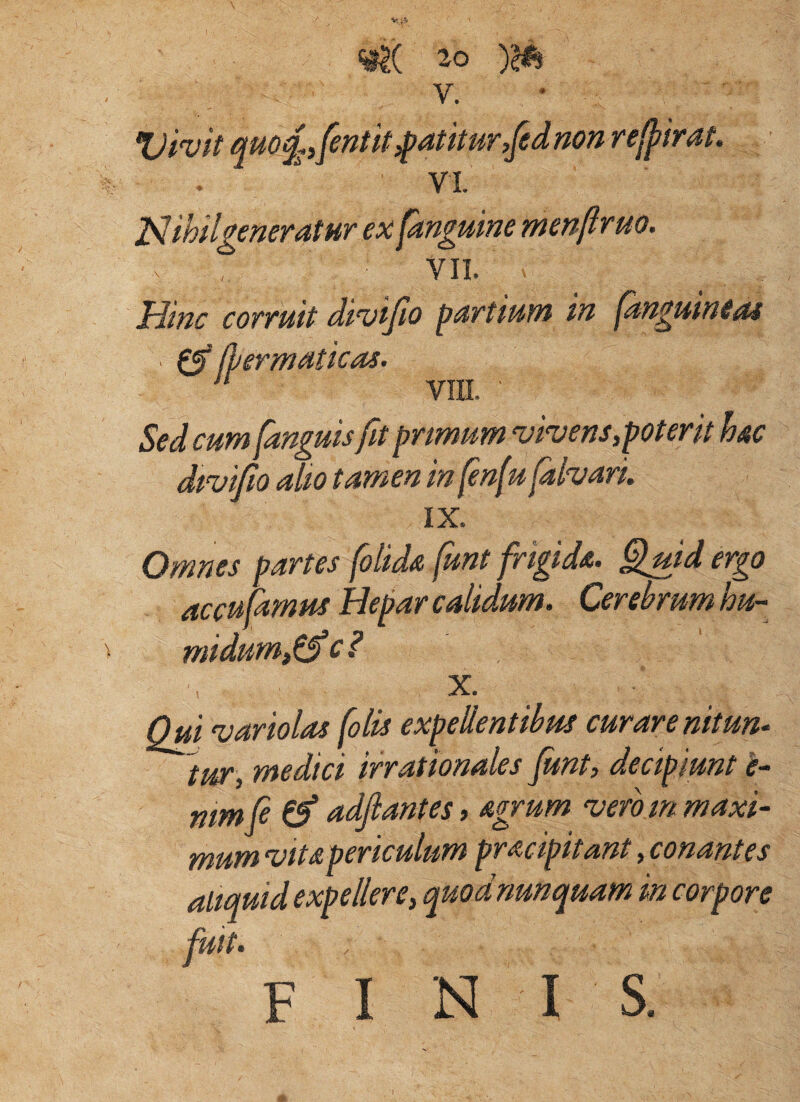 ( 20 )
V.
Vivit quoq;, ſentit, patitur, ſed non reſpirat.
VI.
Nihil generatur ex ſanguine menſtruo.
VII.
Hinc corruit diviſio partium in ſanguineas
& ſpermaticas.
VIII.
Sed cum ſanguis ſit primum vivens, poterit hæc
diviſio alio tamen in ſenſu ſalvari.
IX.
Omnes partes ſolidæ ſunt frigidæ. Quid ergo
accuſamus Hepar calidum. Cerebrum hu-
midum, &c?
X.
Qui variolas ſolis expellentibus curare nitun-
tur, medici irrationales ſunt, decipiunt e-
nim ſe & adſtantes, ægrum verò in maxi-
mum vitæ periculum præcipitant, conantes
aliquid expellere, quod nunquam in corpore
fuit.
FINIS.